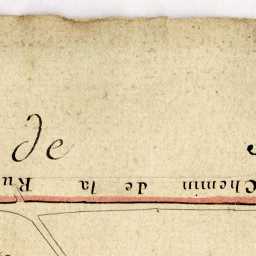 de
Chemin de la Ru